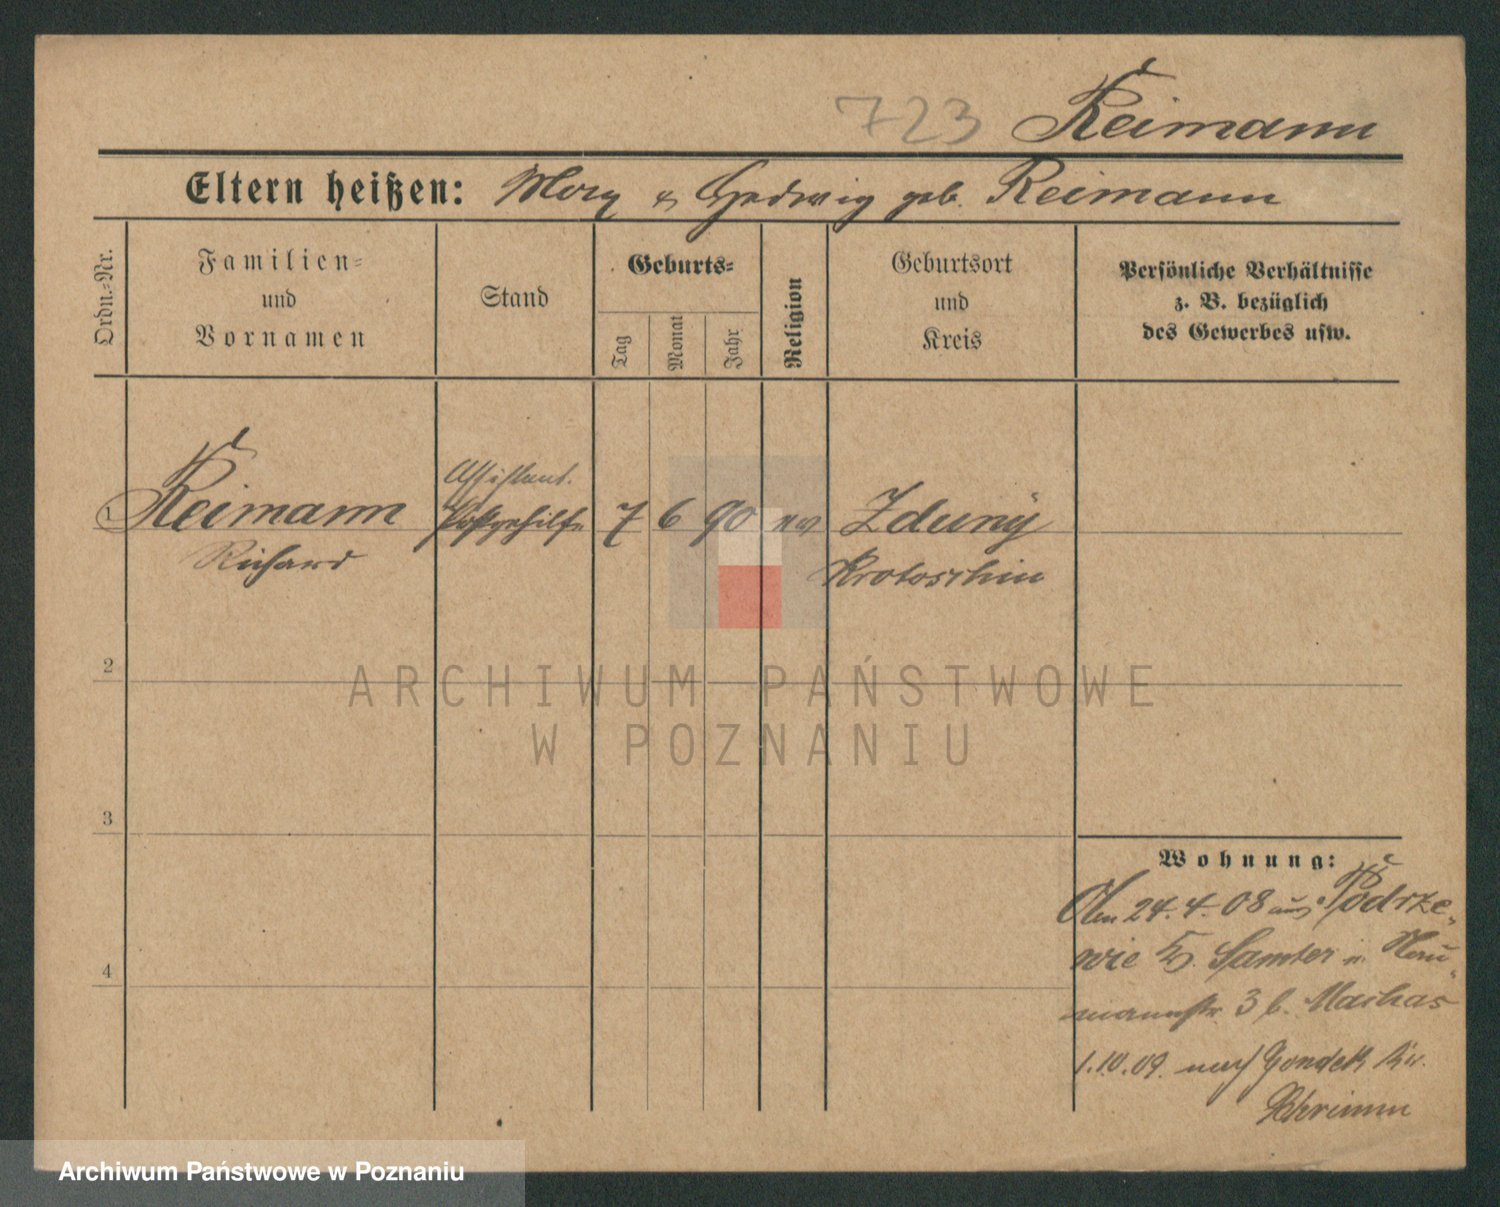 723 Reimann
Eltern heißen: Morz & Hedwig geb. Reimann
Ordn.-Nr.
Familien-
und
Vornamen
Stand
Geburts-
Tag
Monat
Jahr
Religion
Geburtsort
und
Kreis
Persönliche Verhältnisse
z. B. bezüglich
des Gewerbes usw.
Assistent.
1 Reimann Postgehilfe 7 6 90 ev Zduny
Richard Krotoschin
2
3
4
Wohnung:
24.4.08 aus Podrze-
wie Kr. Samter n. Nau-
mannstr. 3 b.
1.10.09. nach Gondek Kr.
Schrimm
ARCHIWUM PAŃSTWOWE
W POZNANIU
Archiwum Państwowe w Poznaniu